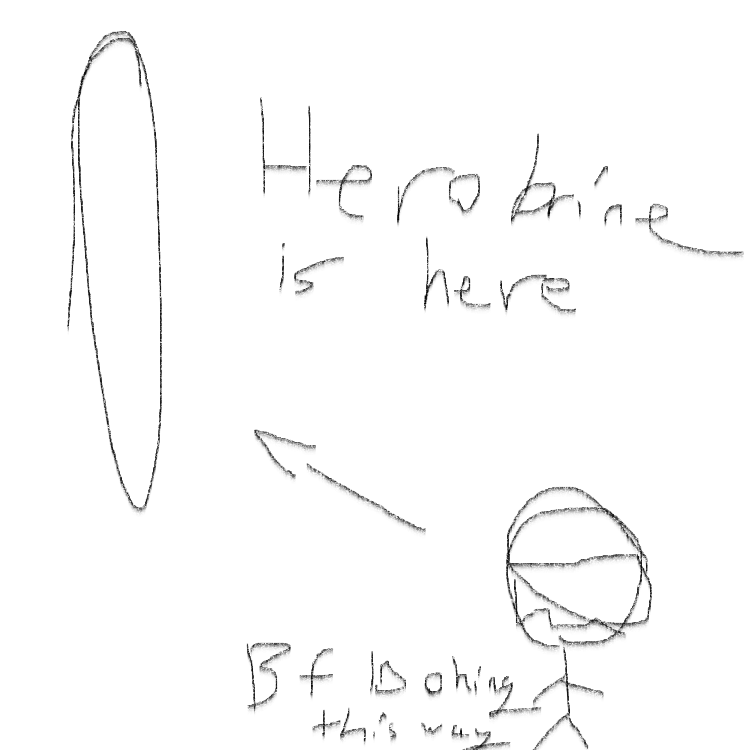 Herobrine
is here
Bf is
this way